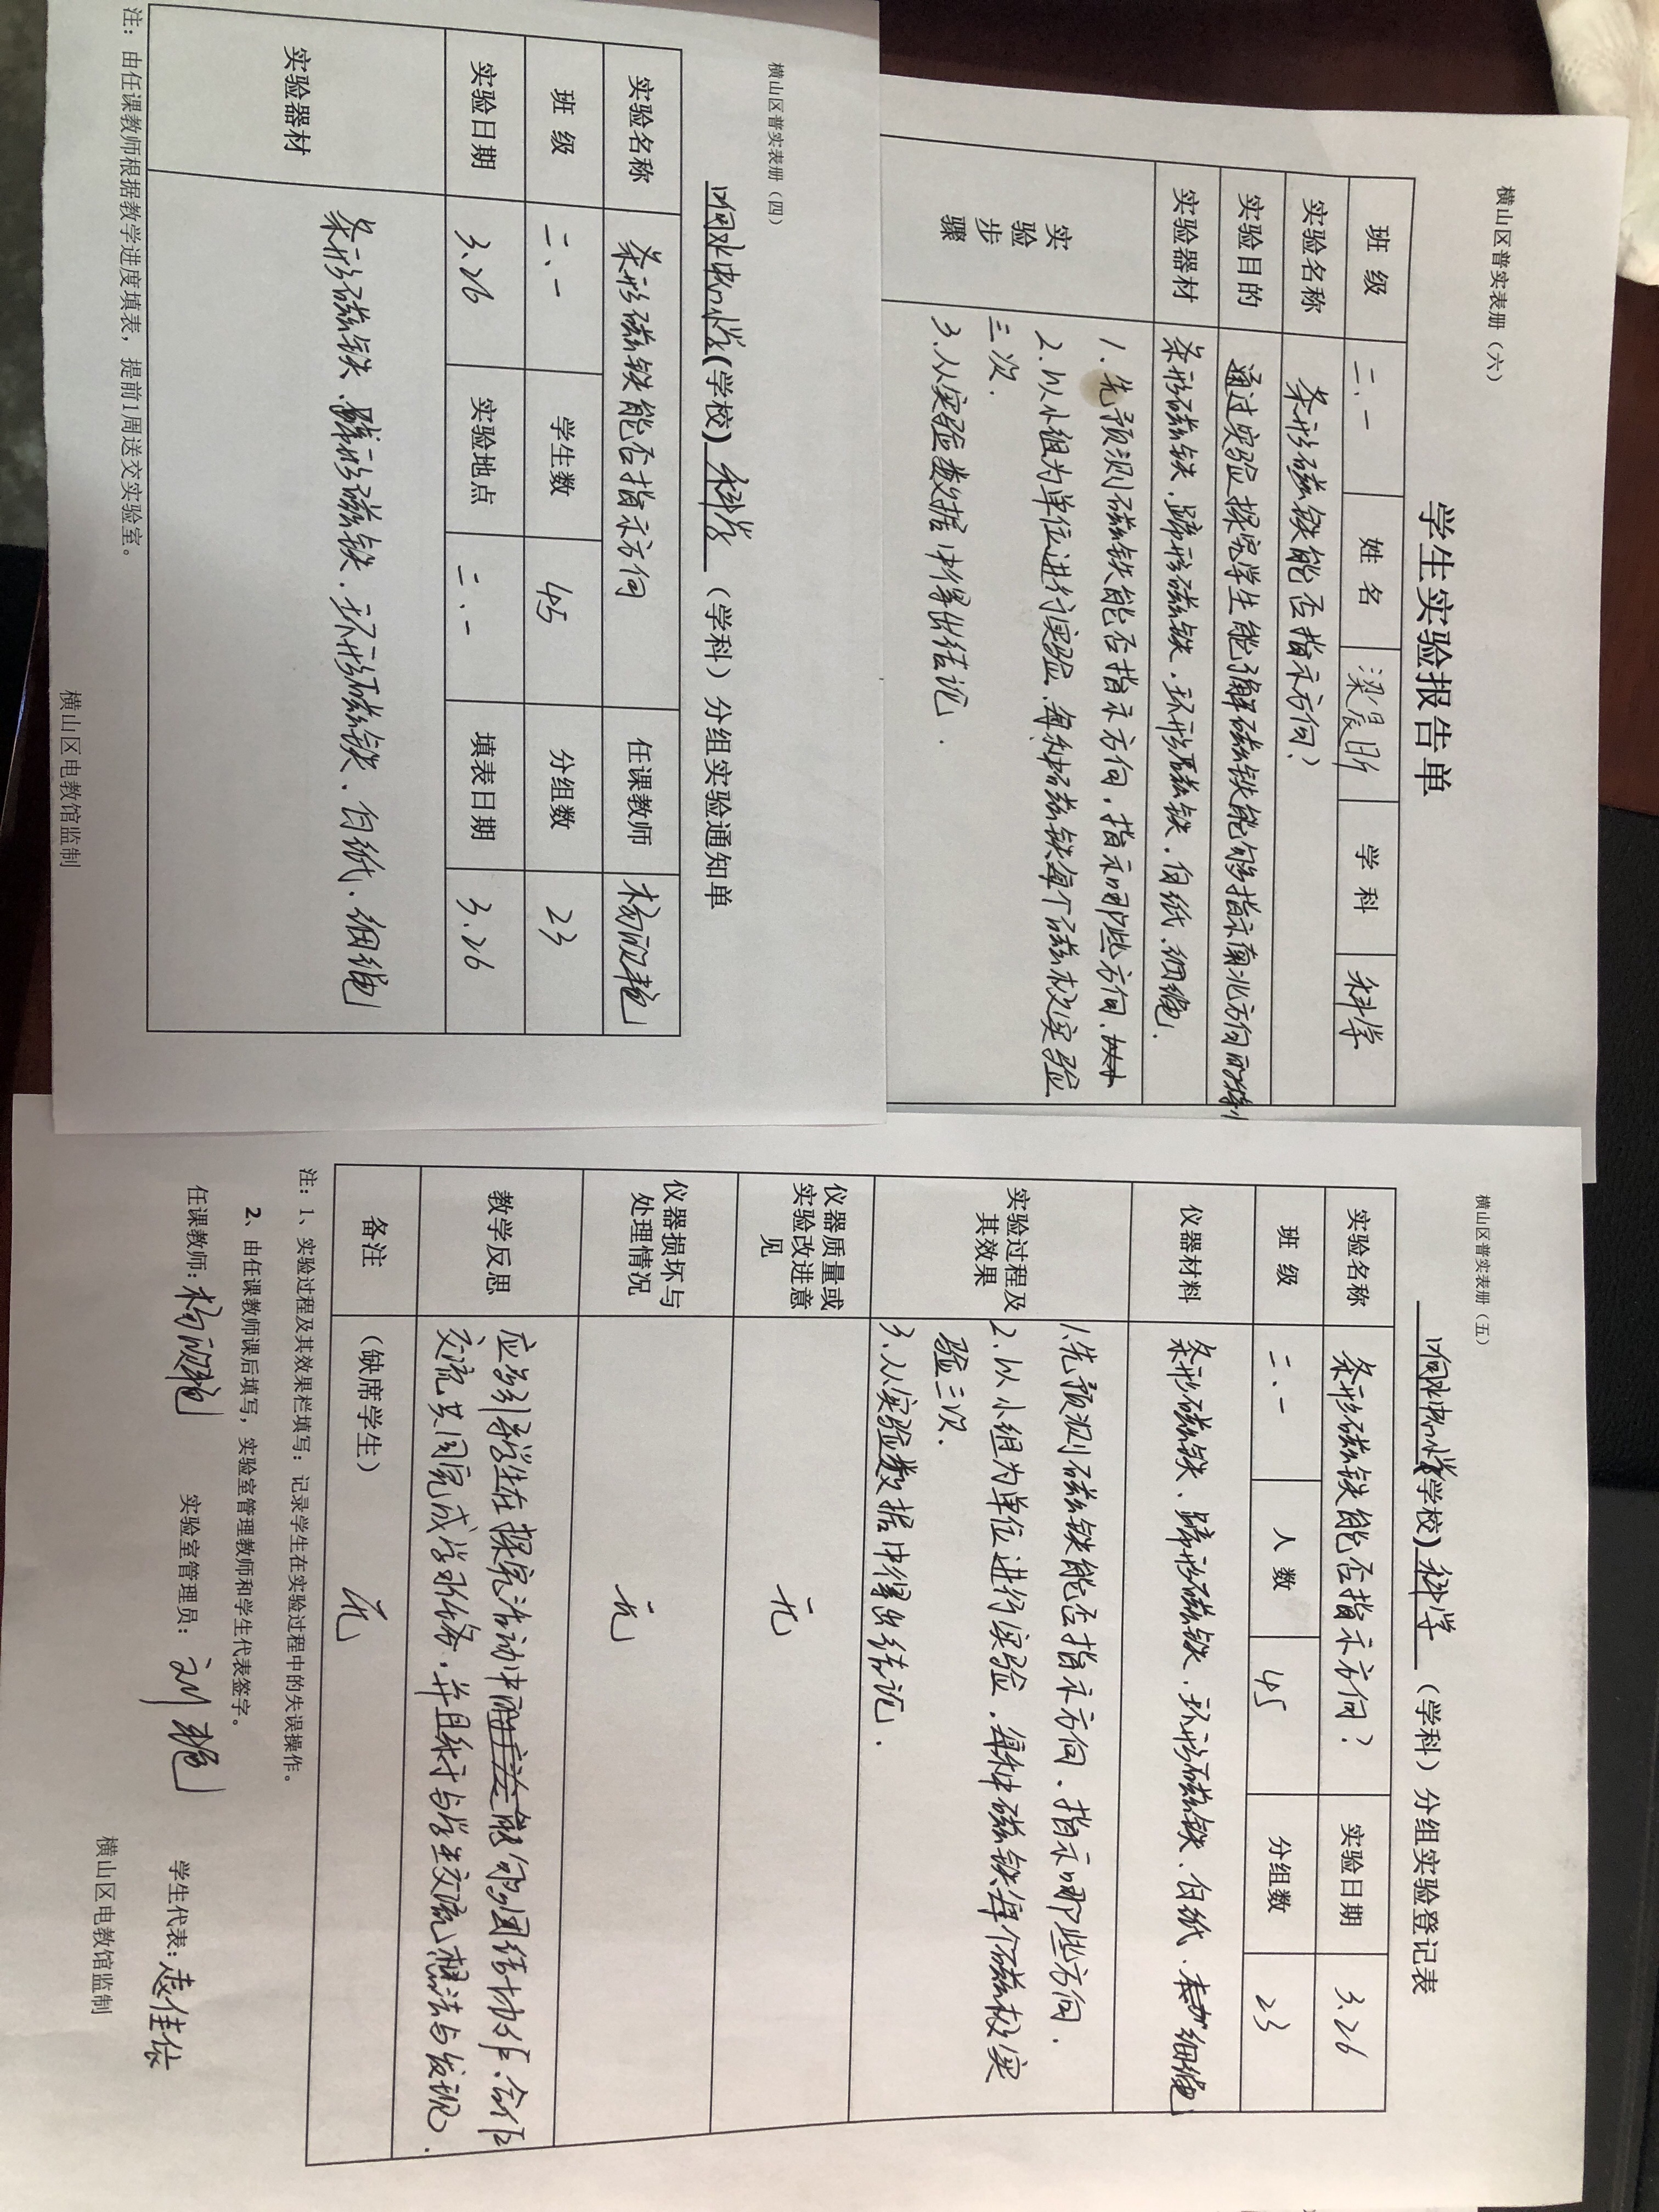 横山区普实表册（四）
(学校) 科学 （学科）分组实验通知单
实验名称 条形磁铁能否指示方向 任课教师
班 级 二、一 学生数 45 分组数 23
实验日期 3.26 实验地点 二、一 填表日期 3.26
实验器材 条形磁铁、蹄形磁铁、环形磁铁、白纸、细绳
注：由任课教师根据教学进度填表，提前1周送交实验室。
横山区电教馆监制
横山区普实表册（六）
学生实验报告单
班 级 二、一 姓 名 梁 学 科 科学
实验名称 条形磁铁能否指示方向?
实验目的 通过实验探究学生能了解磁铁能够指示南北方向
实验器材 条形磁铁、蹄形磁铁、环形磁铁、白纸、细绳.
实验步骤
1.先预测磁铁能否指示方向,指示哪些方向、
2.以小组为单位进行实验、每种磁铁每个磁极实验
三次.
3.从实验数据中得出结论.
横山区普实表册（五）
(学校) 科学 （学科）分组实验登记表
实验名称 条形磁铁能否指示方向? 实验日期 3.26
班 级 二、一 人 数 45 分组数 23
仪器材料 条形磁铁、蹄形磁铁、环形磁铁、白纸、细绳
实验过程及
其效果
1.先预测磁铁能否指示方向、指示哪些方向.
2.以小组为单位进行实验、每种磁铁每个磁极实
验三次.
3.从实验数据中得出结论.
仪器质量或
实验改进意
见
无
仪器损坏与
处理情况
无
教学反思
应当引导学生在探究活动中能够团结协作、合作
交流共同完成学习任务,并且乐于与学生交流想法与发现.
备注 （缺席学生） 无
注：1、实验过程及其效果栏填写：记录学生在实验过程中的失误操作。
2、由任课教师课后填写，实验室管理教师和学生代表签字。
任课教师: 实验室管理员：刘艳 学生代表:
横山区电教馆监制